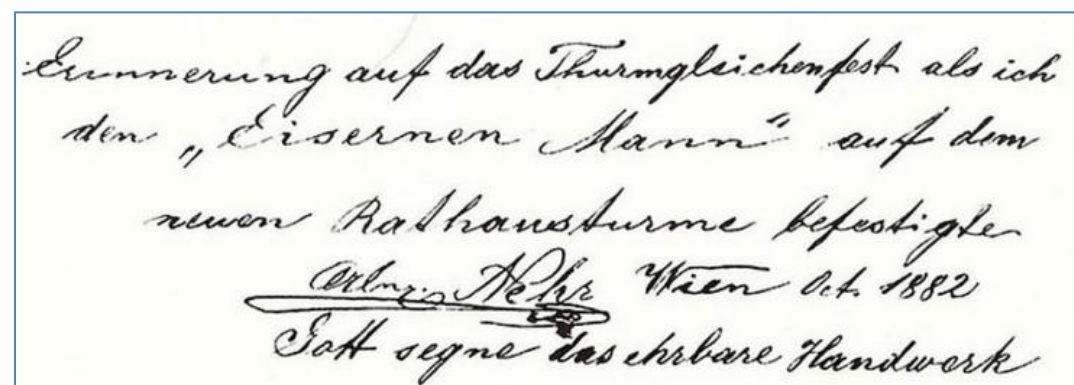 Erinnerung auf das Thurmgleichenfest als ich
den „Eisernen Mann“ auf dem
neuen Rathausturme befestigte
Nehr Wien Oct. 1882
Gott segne das ehrbare Handwerk